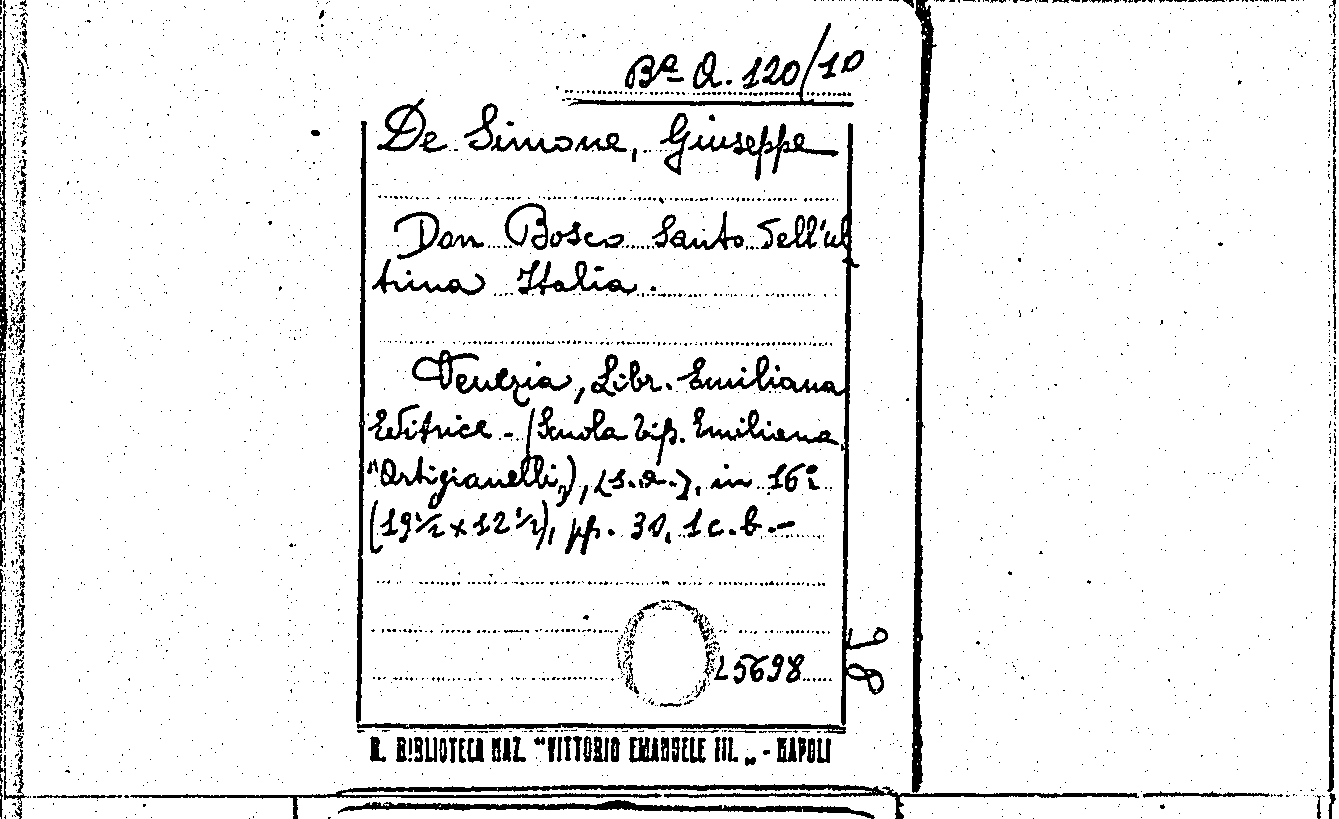 Bª Q. 120/10
De Simone, Giuseppe
Don Bosco Santo dell'ul
trina Italia.
Venezia, Libr. Emiliana
Editrice - (Scuola tip. Emiliana
"Artigianelli„), (s.a.), in 16º
(19½ x 12½), pp. 30, 1 c. b. -
L5698
R. BIBLIOTECA NAZ. "VITTORIO EMANUELE III.„ - NAPOLI